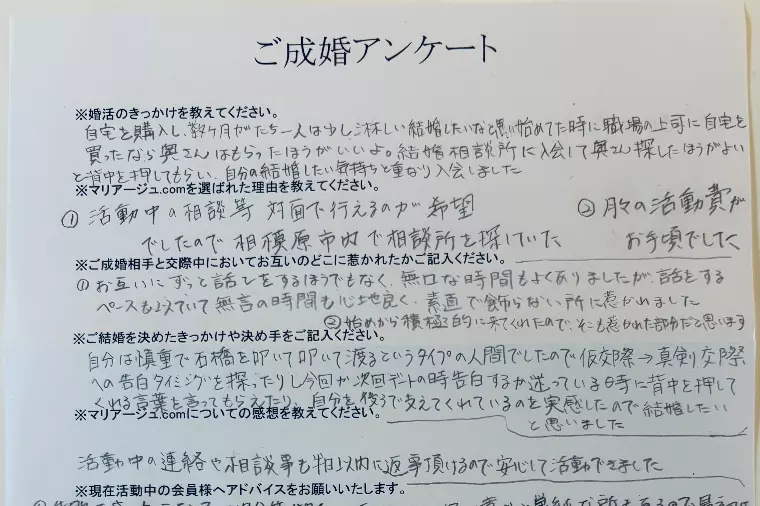 ご成婚アンケート
※婚活のきっかけを教えてください。
自宅を購入し、数ヶ月がたち一人は少し淋しい結婚したいなと思い始めてた時に職場の上司に自宅を
買ったなら奥さんはもらったほうがいいよ。結婚相談所に入会して奥さん探したほうがよい
と背中を押してもらい、自分の結婚したい気持ちと重なり入会しました
※マリアージュ.comを選ばれた理由を教えてください。
①活動中の相談等 対面で行えるのが希望
でしたので相模原市内で相談所を探していた
②月々の活動費が
お手頃でした
※ご成婚相手と交際中においてお互いのどこに惹かれたかご記入ください。
①お互いにずっと話をするほうでもなく、無口な時間もよくありましたが、話をする
ペースも似ていて無言の時間も心地良く、素直で飾らない所に惹かれました
②始めから積極的に来てくれたので、そこも惹かれた部分だと思います
※ご結婚を決めたきっかけや決め手をご記入ください。
自分は慎重で石橋を叩いて叩いて渡るというタイプの人間でしたので仮交際→真剣交際
への告白タイミングを探ったりし今回か次回デートの時告白するか迷っている時に背中を押して
くれる言葉を言ってもらえたり、自分を後ろで支えてくれているのを実感したので結婚したい
と思いました
※マリアージュ.comについての感想を教えてください。
活動中の連絡や相談事も半日以内に返事頂けるので安心して活動できました
※現在活動中の会員様へアドバイスをお願いいたします。